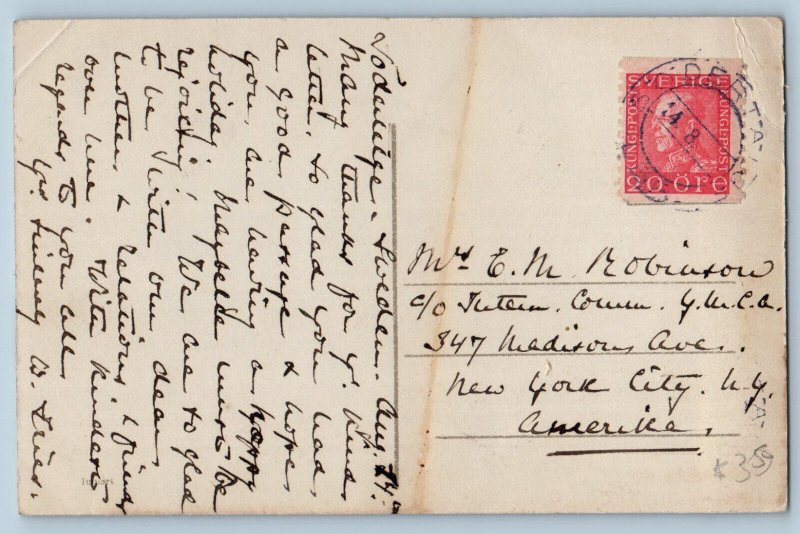 Södertelge. Sweden. Aug. 14.
Many thanks for y. kind
letter. So glad you had
a good passage & hope
you are having a happy
holiday. Maybelle must be
rejoicing! We are so glad
to be with our dear
mother & relations & friends
over here. With kindest
regards to you all
yrs sincerely W.
Import
SVERIGE
KUNGL. POST
UNGL. POST
20 ÖRE
14. 8.
Mrs E. M. Robinson
c/o Intern. Comm. Y.M.C.A.
347 Madisons Ave.
New York City. N.Y.
Amerika.
359